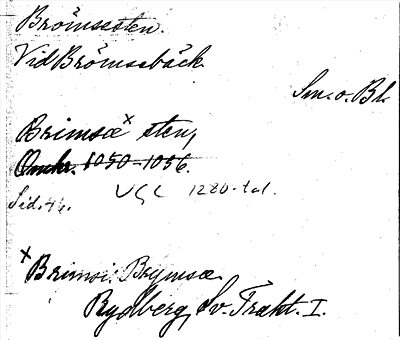 Brömsesten.
Vid Brömsebäck
Sm. o. Bl.
Brimsæ x sten,
Omkr. 1050-1056.
Sid. 44. VGL 1280-tal.
x Brimsi. Brymsæ
Rydberg, Sv. Trakt. I.